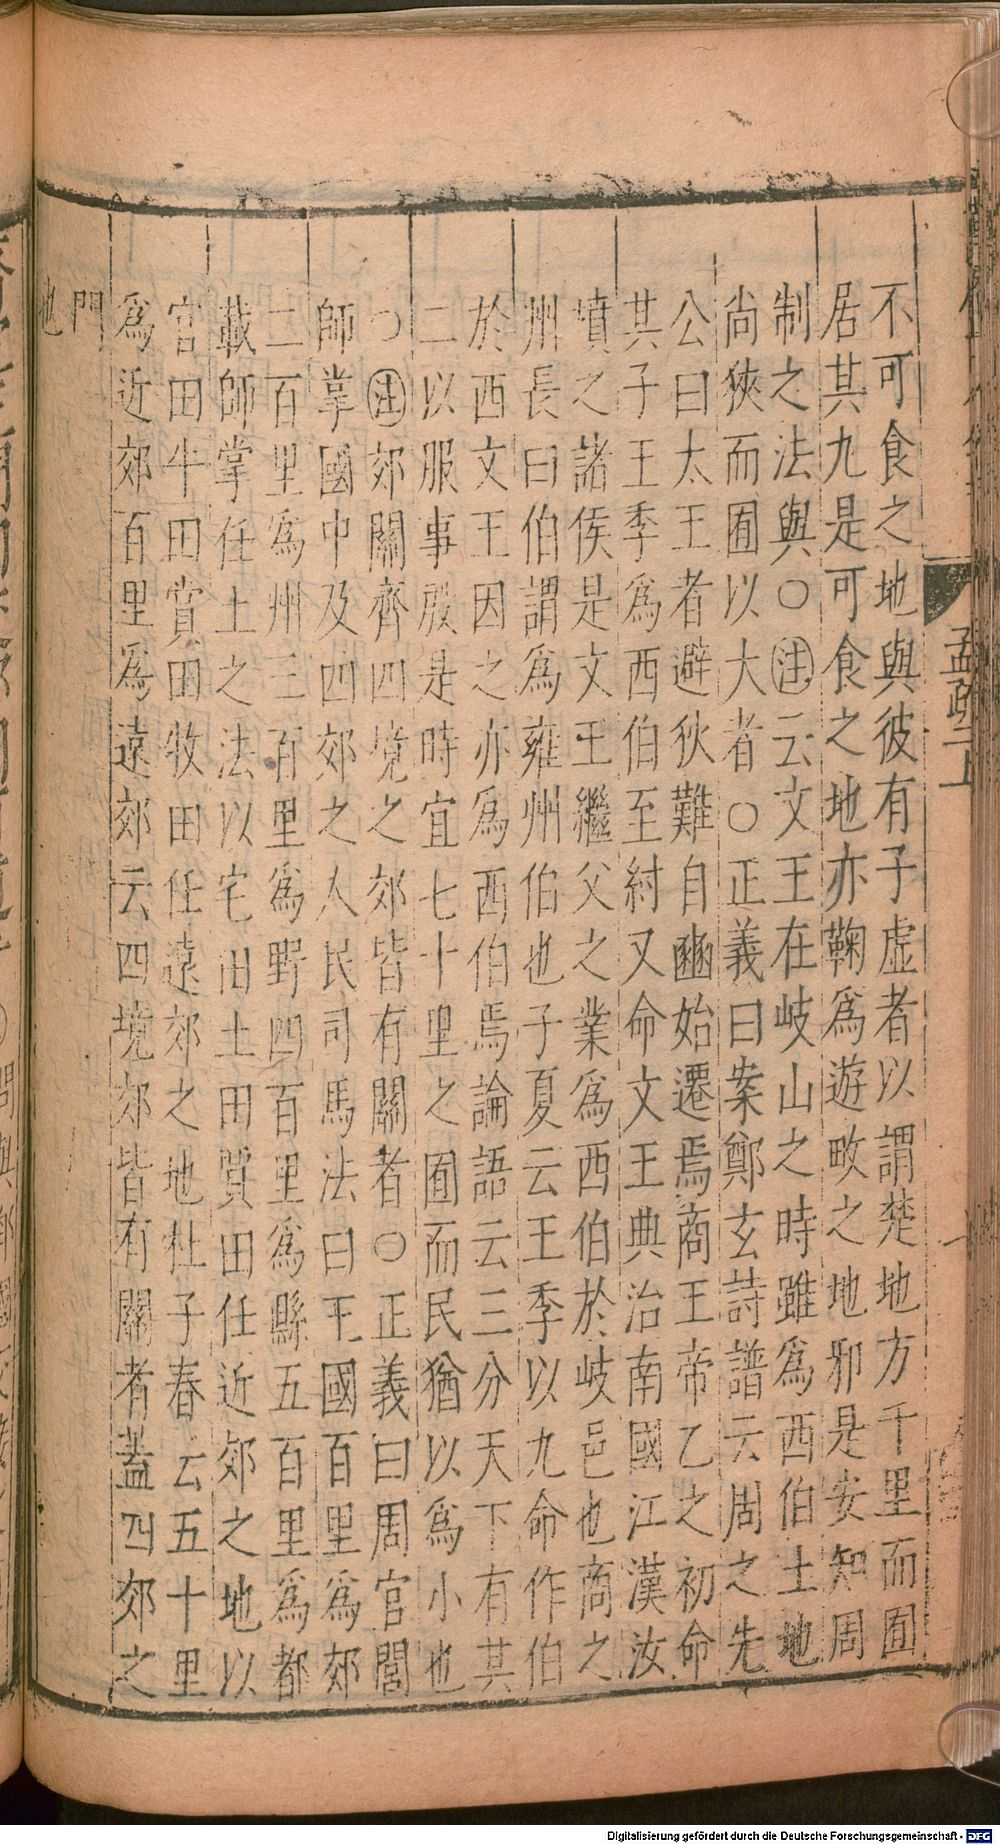 不可食之地與彼有子虛者以謂楚地方千里而囿
居其九是可食之地亦鞠為遊畋之地邪是安知周
制之法與○注云文王在岐山之時雖為西伯土地
尚狹而囿以大者○正義曰案鄭玄詩譜云周之先
公曰太王者避狄難自豳始遷焉商王帝乙之初命
其子王季為西伯至紂又命文王典治南國江漢汝
墳之諸侯是文王繼父之業為西伯於岐邑也商之
州長曰伯謂為雍州伯也子夏云王季以九命作伯
於西文王因之亦為西伯焉論語云三分天下有其
二以服事殷是時宜七十里之囿而民猶以為小也
○注郊關齊四境之郊皆有關者○正義曰周官閽
師掌國中及四郊之人民司馬法曰王國百里為郊
二百里為州三百里為野四百里為縣五百里為都
載師掌任土之法以宅田土田賈田任近郊之地以
官田牛田賞田牧田任遠郊之地杜子春云五十里
為近郊百里為遠郊云四境郊皆有關者蓋四郊之
門
也
孟疏二上
Digitalisierung gefördert durch die Deutsche Forschungsgemeinschaft - DFG